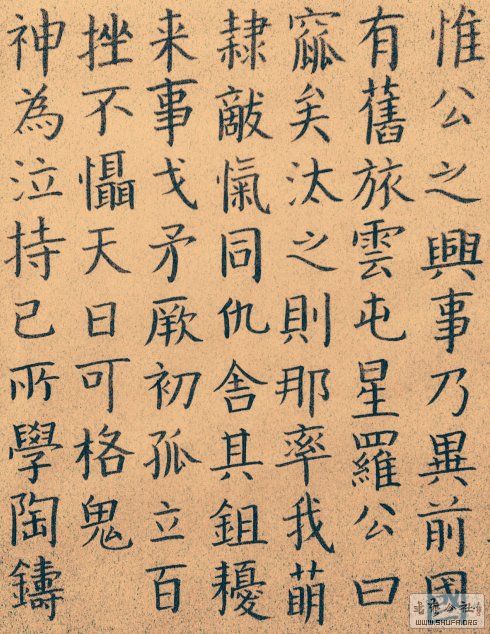 惟公之興事乃異前因
有舊旅雲屯星羅公曰
窳矣汰之則那率我萌
隸敵愾同仇舍其鉏耰
来事戈矛厥初孤立百
挫不懾天日可格鬼
神為泣持已所學陶鑄
WWW.SHUFA.ORG